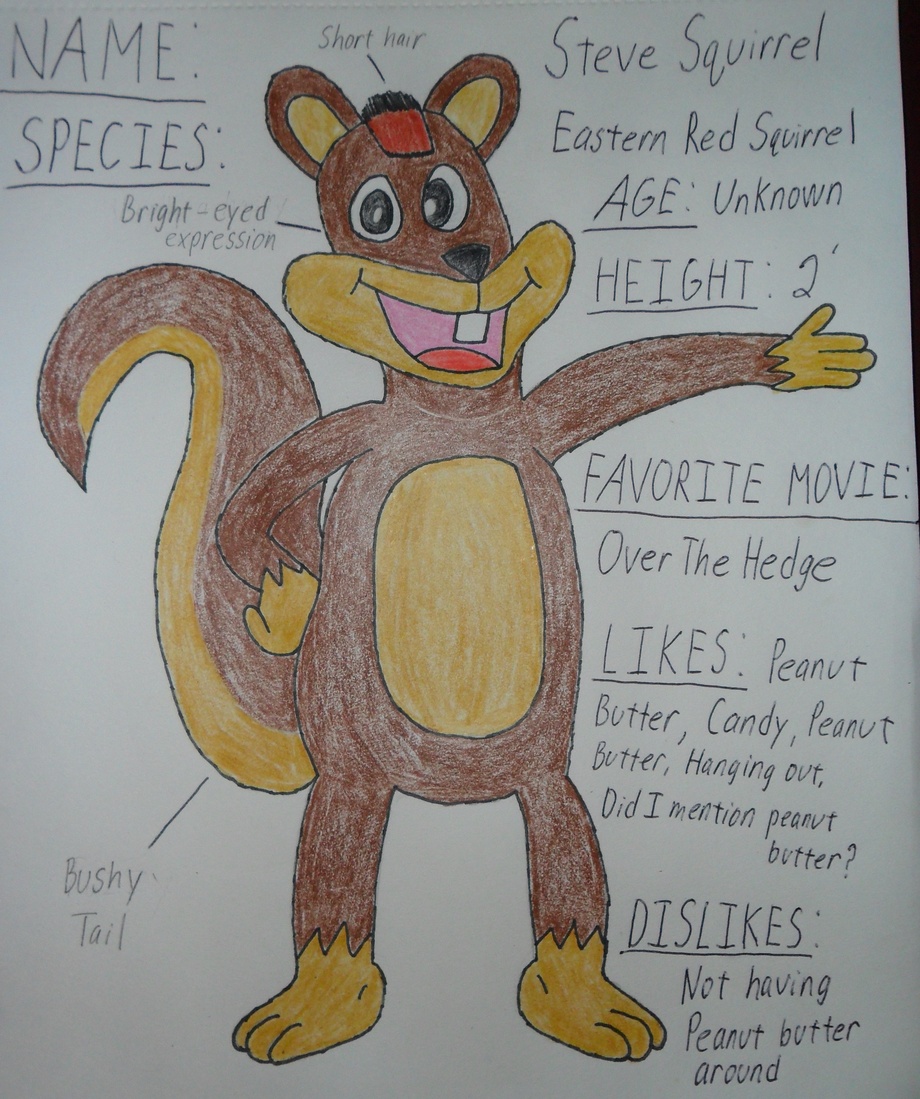 NAME: Steve Squirrel
Short hair
SPECIES: Eastern Red Squirrel
AGE: Unknown
Bright-eyed
expression
HEIGHT: 2'
FAVORITE MOVIE:
Over The Hedge
LIKES: Peanut
Butter, Candy, Peanut
Butter, Hanging out,
Did I mention peanut
butter?
Bushy
Tail
DISLIKES:
Not having
Peanut butter
around